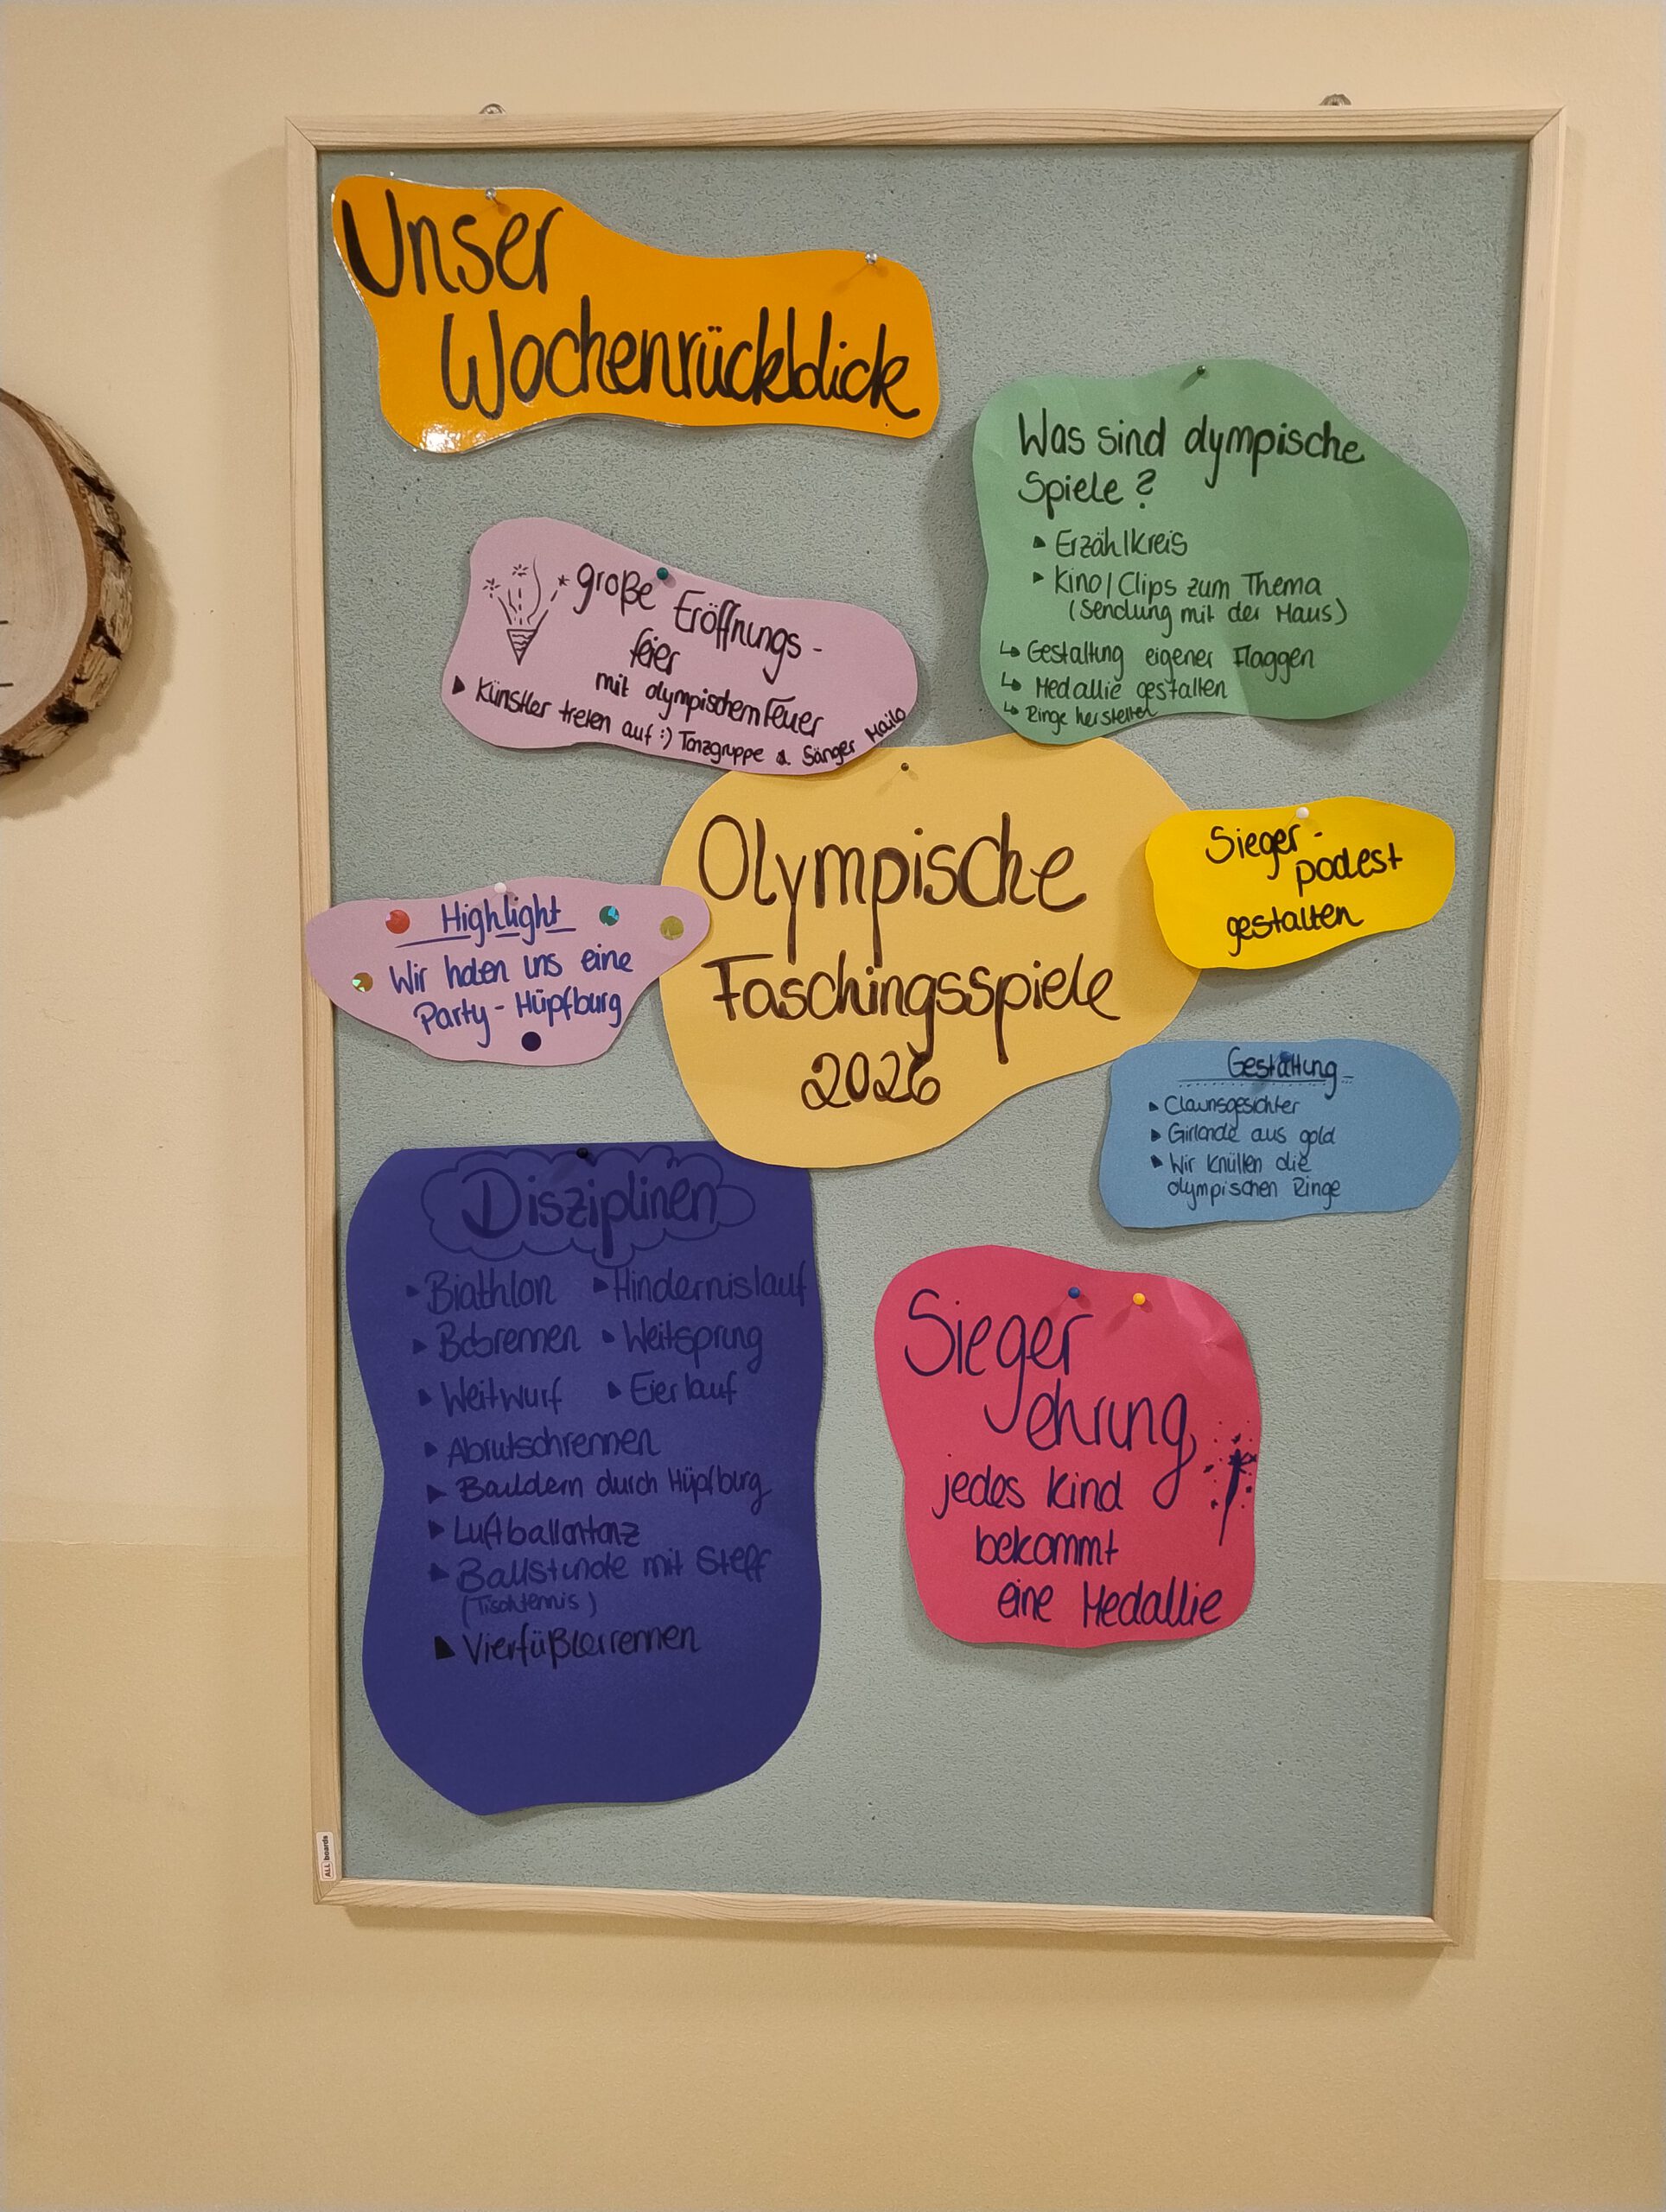 Unser
Wochenrückblick
Was sind olympische
Spiele?
Erzählkreis
Kino/Clips zum Thema
(Sendung mit der Maus)
Gestaltung eigener Flaggen
Medallie gestalten
Ringe herstellen
große Eröffnungs-
feier
mit olympischem Feuer
Künstler treten auf :) Tanzgruppe & Sänger Mailo
Olympische
Faschingsspiele
2026
Sieger-
podest
gestalten
Highlight
Wir holen uns eine
Party-Hüpfburg
Gestaltung
Clownsgesichter
Girlande aus gold
Wir knüllen die
olympischen Ringe
Disziplinen
Biathlon
Hindernislauf
Bobrennen
Weitsprung
Weitwurf
Eierlauf
Abrutschrennen
durch Hüpfburg
Luftballontanz
Ballstunde mit Steff
(Tischtennis)
Vierfüßlerrennen
Sieger
ehrung
jedes Kind
bekommt
eine Medallie
ALLboards